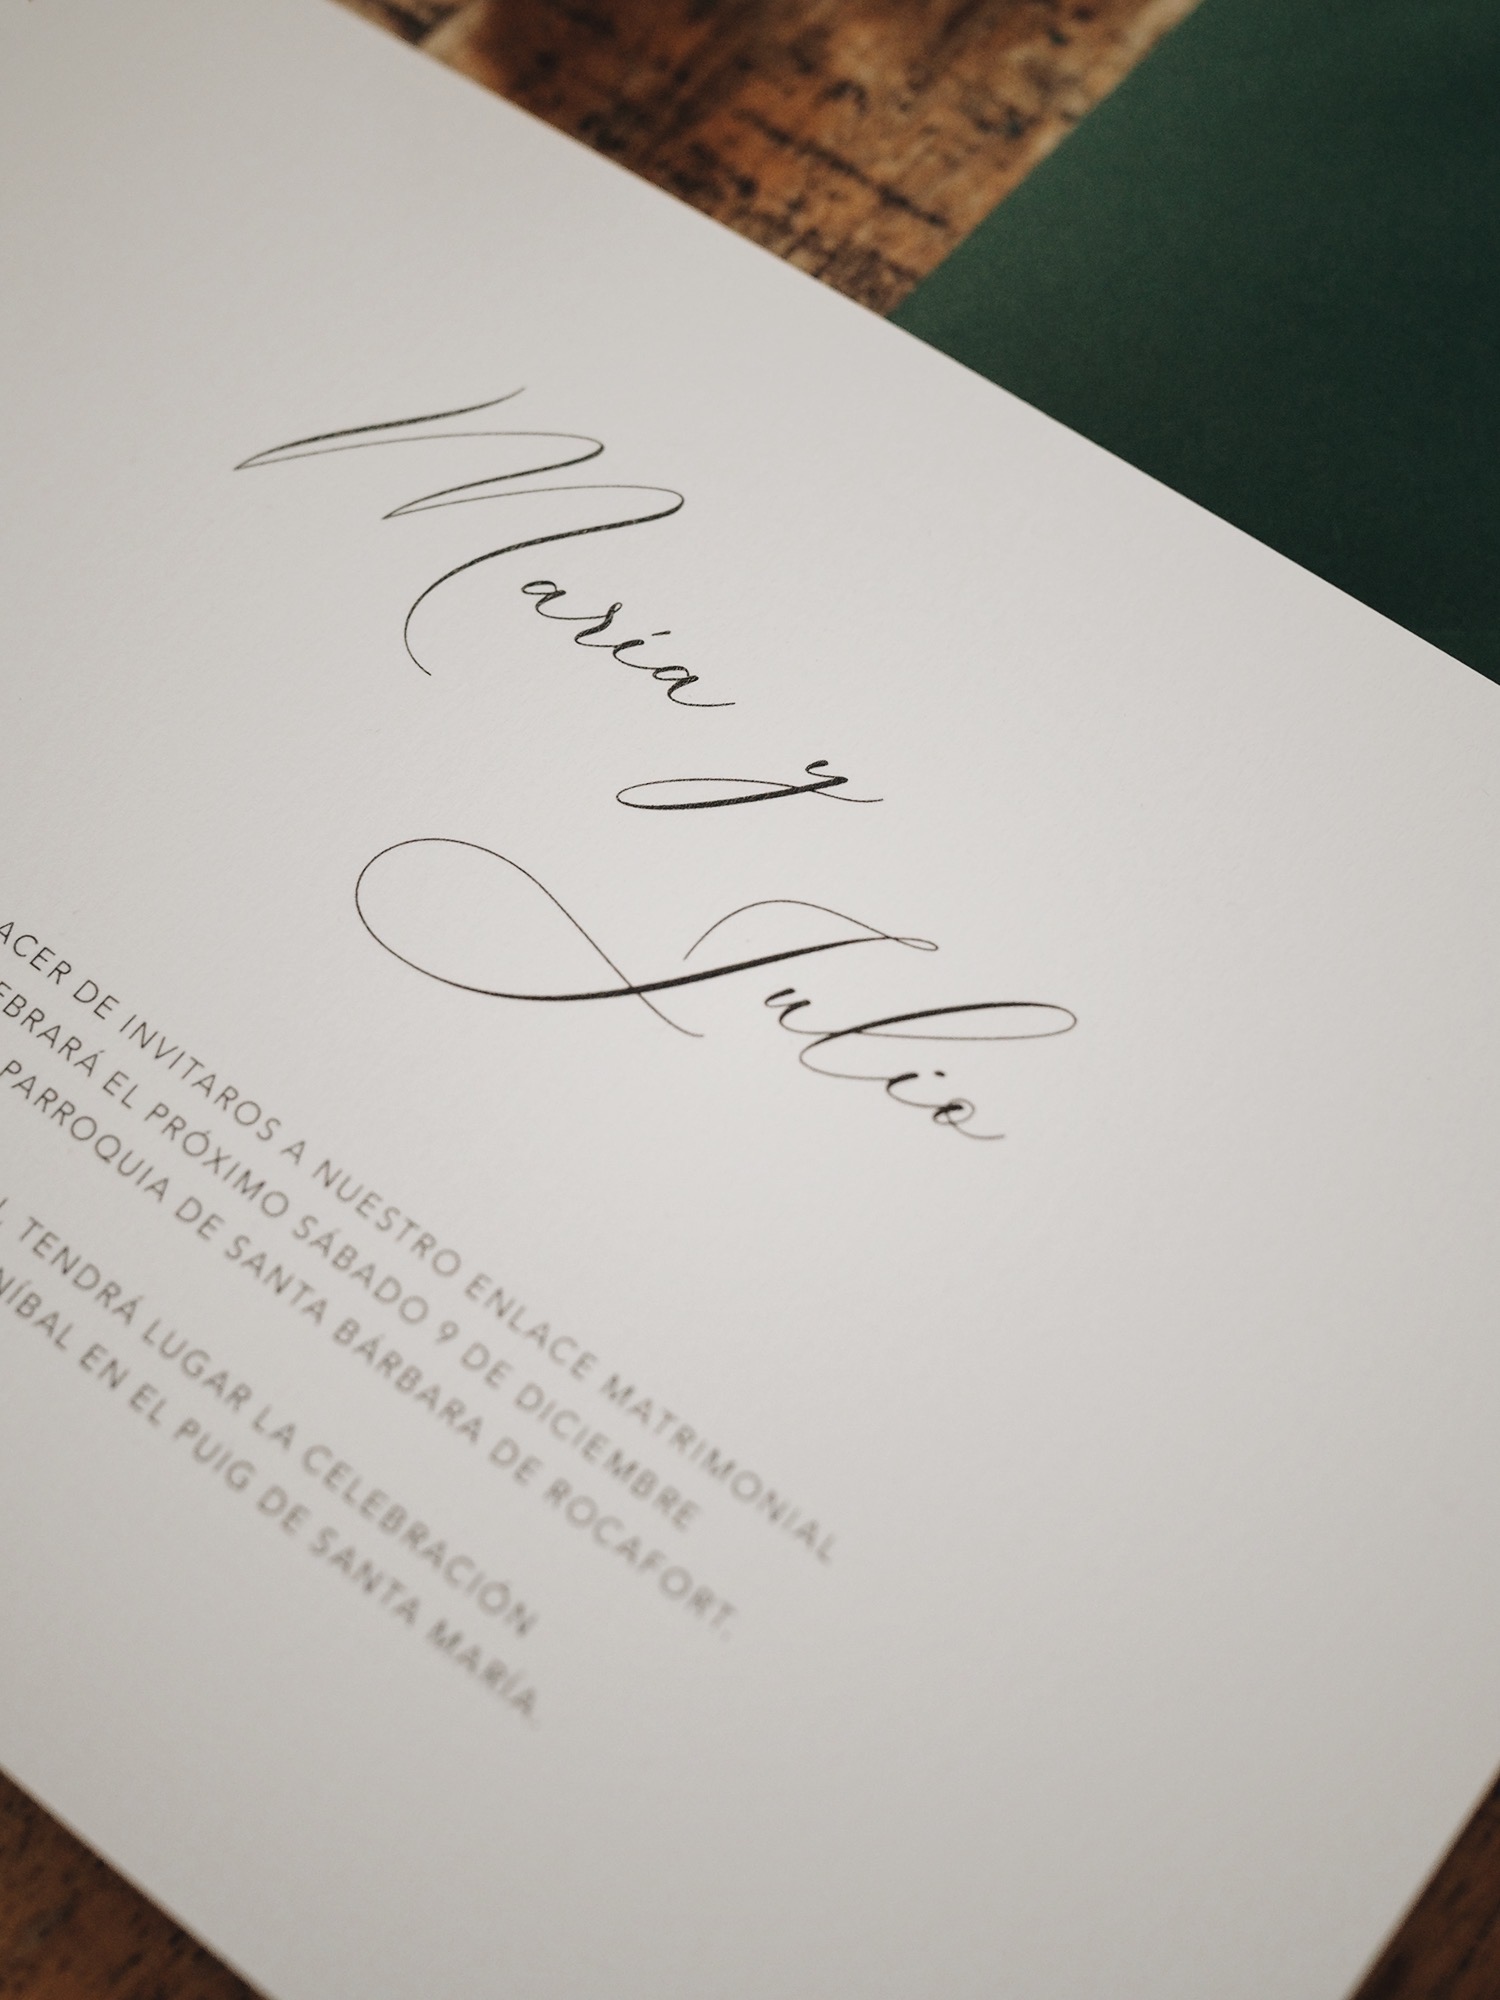 María y
Julio
ACER DE INVITAROS A NUESTRO ENLACE MATRIMONIAL
EBRARÁ EL PRÓXIMO SÁBADO 9 DE DICIEMBRE
PARROQUIA DE SANTA BÁRBARA DE ROCAFORT.
TENDRÁ LUGAR LA CELEBRACIÓN
NÍBAL EN EL PUIG DE SANTA MARÍA.